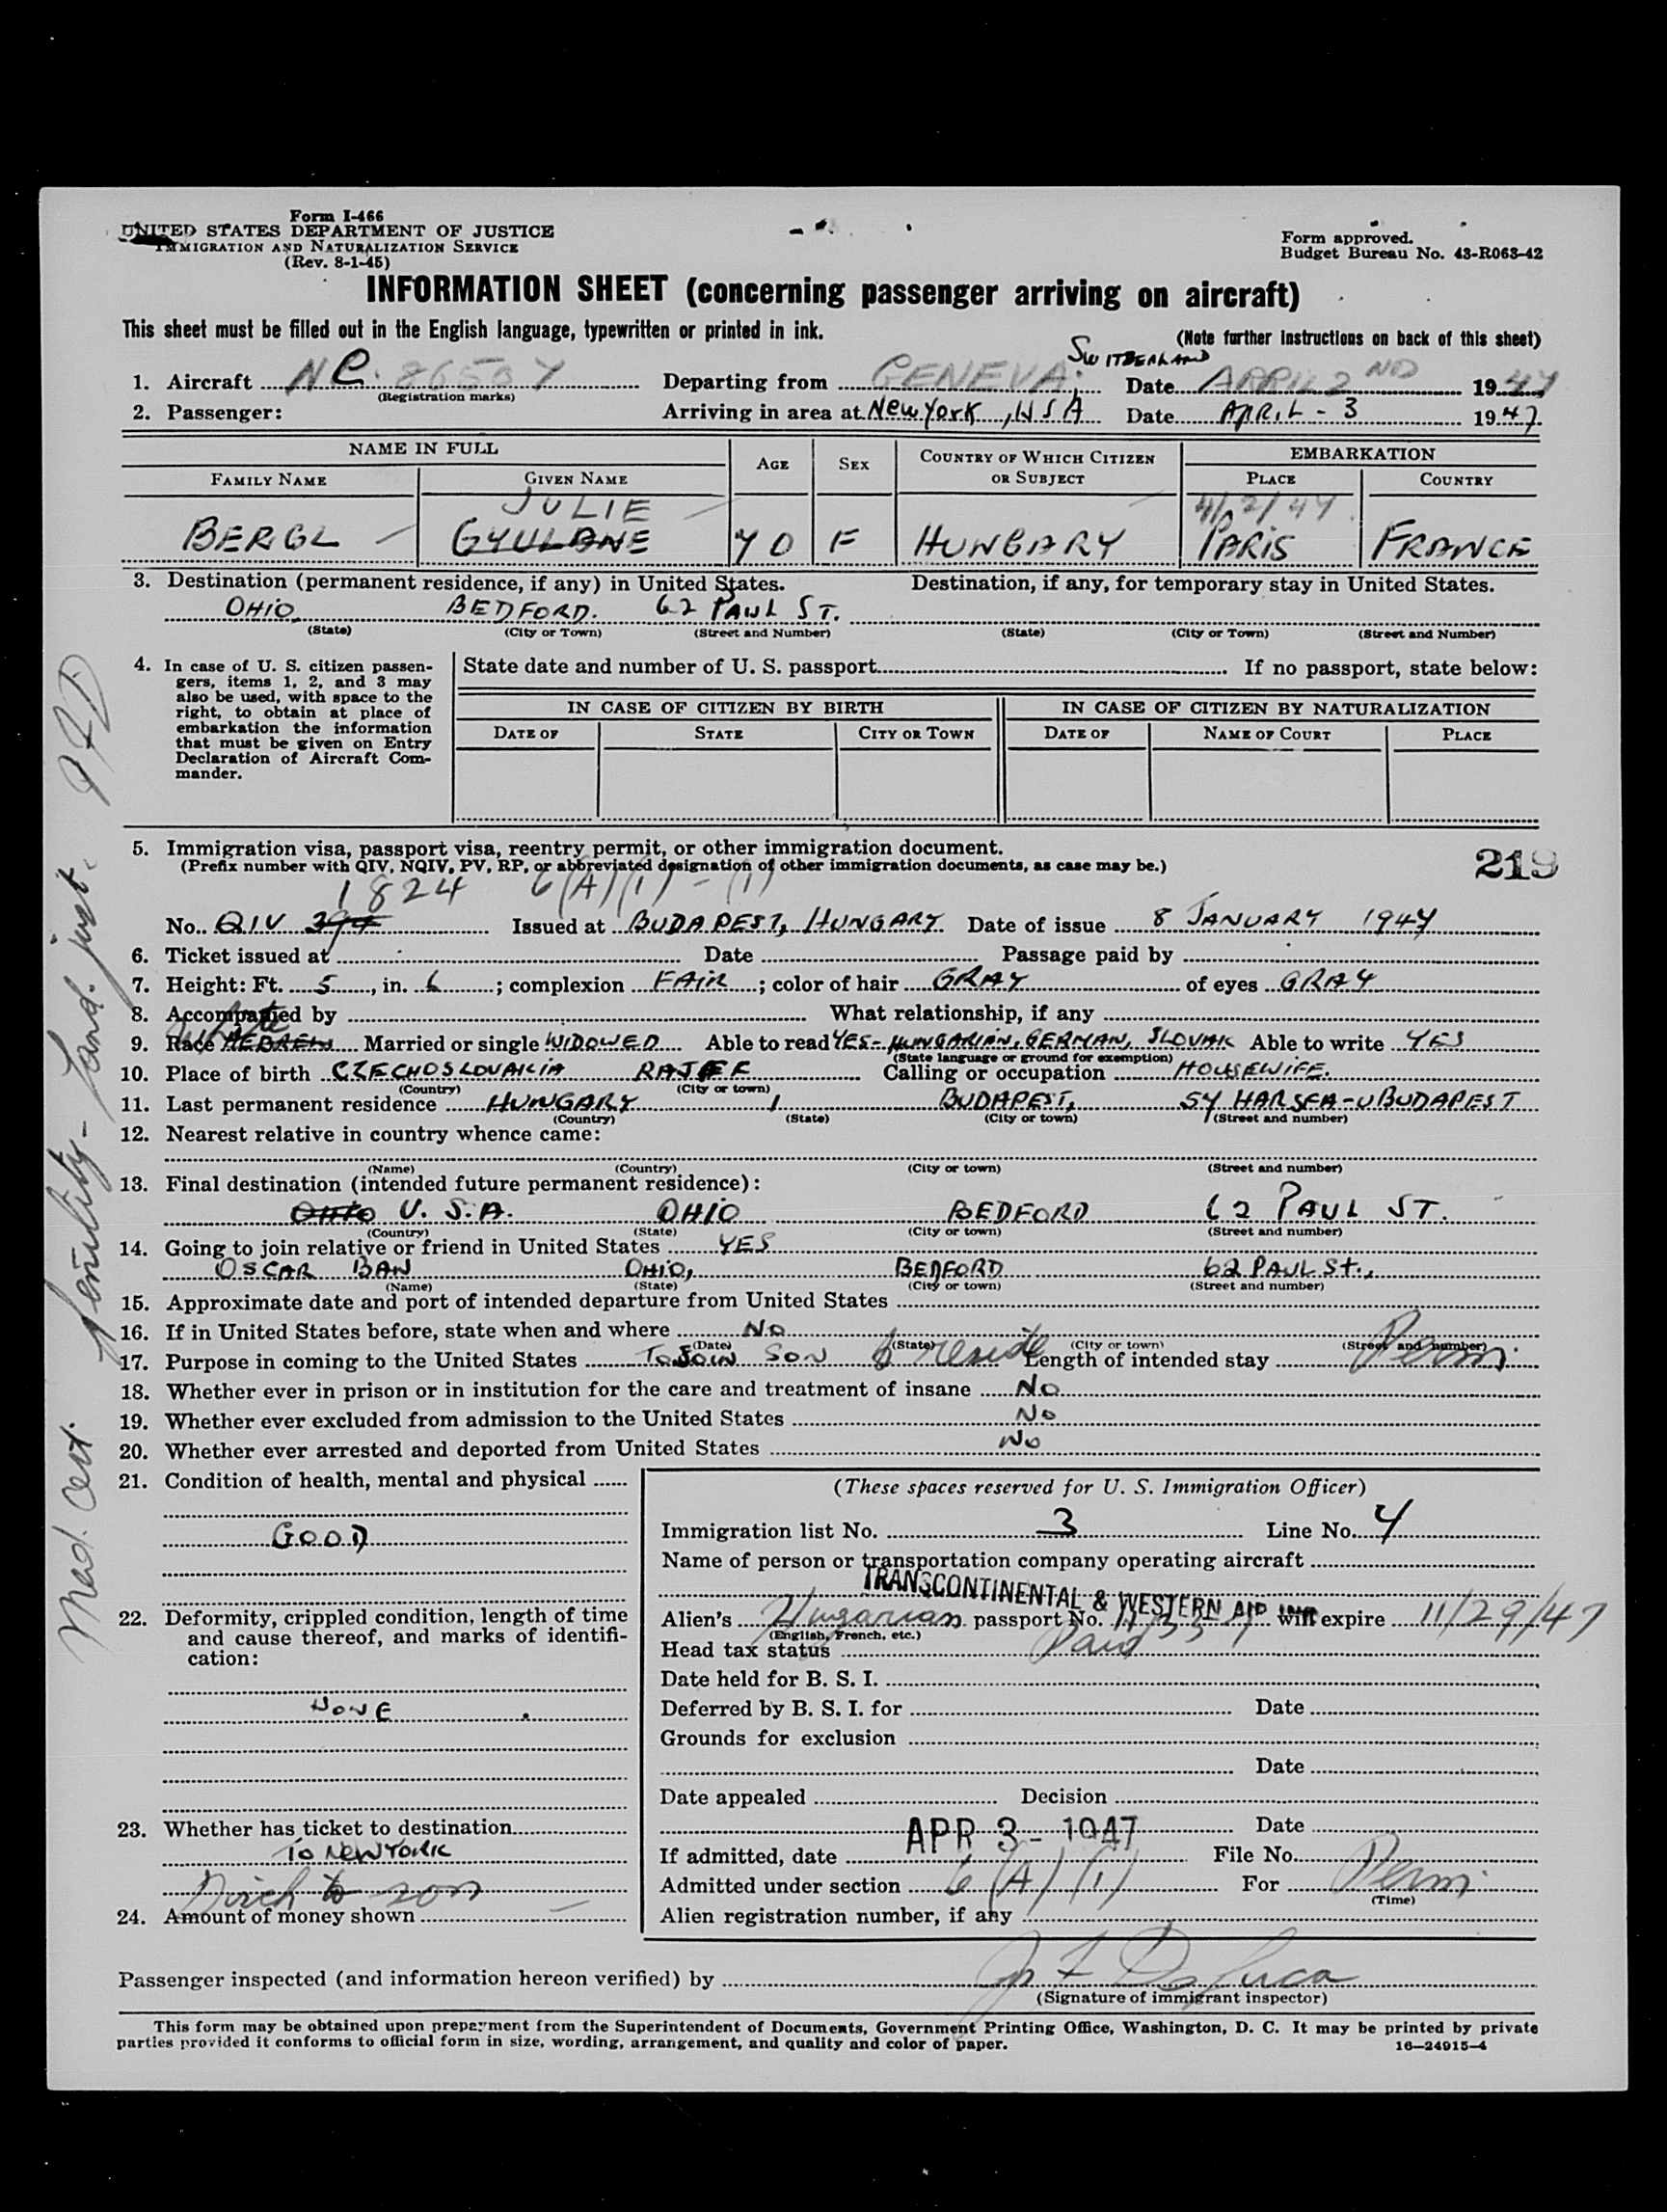 Form I-466
UNITED STATES DEPARTMENT OF JUSTICE
IMMIGRATION AND NATURALIZATION SERVICE
(Rev. 8-1-45)
Form approved.
Budget Bureau No. 43-R063-42
INFORMATION SHEET (concerning passenger arriving on aircraft)
This sheet must be filled out in the English language, typewritten or printed in ink.
(Note further instructions on back of this sheet)
SWITZERLAND
1. Aircraft NC. 86507 Departing from GENEVA. Date APRIL 2 ND 1947
(Registration marks)
2. Passenger: Arriving in area at New York, USA Date APRIL - 3 1947
NAME IN FULL AGE SEX COUNTRY OF WHICH CITIZEN OR SUBJECT EMBARKATION
FAMILY NAME GIVEN NAME PLACE COUNTRY
JULIE 4/2/47
BERGL GYULANE 70 F HUNGARY PARIS FRANCE
3. Destination (permanent residence, if any) in United States. Destination, if any, for temporary stay in United States.
OHIO BEDFORD. 62 PAUL ST.
(State) (City or Town) (Street and Number) (State) (City or Town) (Street and Number)
4. In case of U. S. citizen passengers, items 1, 2, and 3 may also be used, with space to the right, to obtain at place of embarkation the information that must be given on Entry Declaration of Aircraft Commander.
State date and number of U. S. passport If no passport, state below:
IN CASE OF CITIZEN BY BIRTH IN CASE OF CITIZEN BY NATURALIZATION
DATE OF STATE CITY OR TOWN DATE OF NAME OF COURT PLACE
5. Immigration visa, passport visa, reentry permit, or other immigration document.
(Prefix number with QIV, NQIV, PV, RP, or abbreviated designation of other immigration documents, as case may be.)
219
1824 6(A)(1) - (1)
No. QIV Issued at BUDAPEST, HUNGARY Date of issue 8 JANUARY 1947
6. Ticket issued at Date Passage paid by
7. Height: Ft. 5, in. 6; complexion FAIR; color of hair GRAY of eyes GRAY
8. Accompanied by What relationship, if any
White
9. Race HEBREW Married or single WIDOWED Able to read YES- HUNGARIAN, GERMAN, SLOVAK Able to write YES
(State language or ground for exemption)
10. Place of birth CZECHOSLOVAKIA Calling or occupation HOUSEWIFE.
(Country) (City or town)
11. Last permanent residence HUNGARY BUDAPEST, BUDAPEST
(Country) (State) (City or town) (Street and number)
12. Nearest relative in country whence came:
(Name) (Country) (City or town) (Street and number)
13. Final destination (intended future permanent residence):
OHIO U. S. A. OHIO BEDFORD 62 PAUL ST.
(Country) (State) (City or town) (Street and number)
14. Going to join relative or friend in United States YES
OSCAR BAN OHIO, BEDFORD 62 PAUL St.,
(Name) (State) (City or town) (Street and number)
15. Approximate date and port of intended departure from United States
16. If in United States before, state when and where NO
(Date) (State) (City or town) (Street and number)
17. Purpose in coming to the United States TO JOIN SON & reside Length of intended stay Perm.
18. Whether ever in prison or in institution for the care and treatment of insane NO
19. Whether ever excluded from admission to the United States NO
20. Whether ever arrested and deported from United States NO
21. Condition of health, mental and physical
GOOD
22. Deformity, crippled condition, length of time and cause thereof, and marks of identification:
NONE
23. Whether has ticket to destination
TO NEW YORK
to son
24. Amount of money shown
(These spaces reserved for U. S. Immigration Officer)
Immigration list No. 3 Line No. 4
Name of person or transportation company operating aircraft
TRANSCONTINENTAL & WESTERN AIR INC
Alien's Hungarian passport No. will expire 11/29/47
(English, French, etc.)
Head tax status Paid
Date held for B. S. I.
Deferred by B. S. I. for Date
Grounds for exclusion
Date
Date appealed Decision
APR 3 - 1947 Date
If admitted, date File No.
Admitted under section 6(A)(1) For Perm.
(Time)
Alien registration number, if any
Passenger inspected (and information hereon verified) by
(Signature of immigrant inspector)
This form may be obtained upon prepayment from the Superintendent of Documents, Government Printing Office, Washington, D. C. It may be printed by private
parties provided it conforms to official form in size, wording, arrangement, and quality and color of paper.
16—24915-4
Med. Cert. Senility -